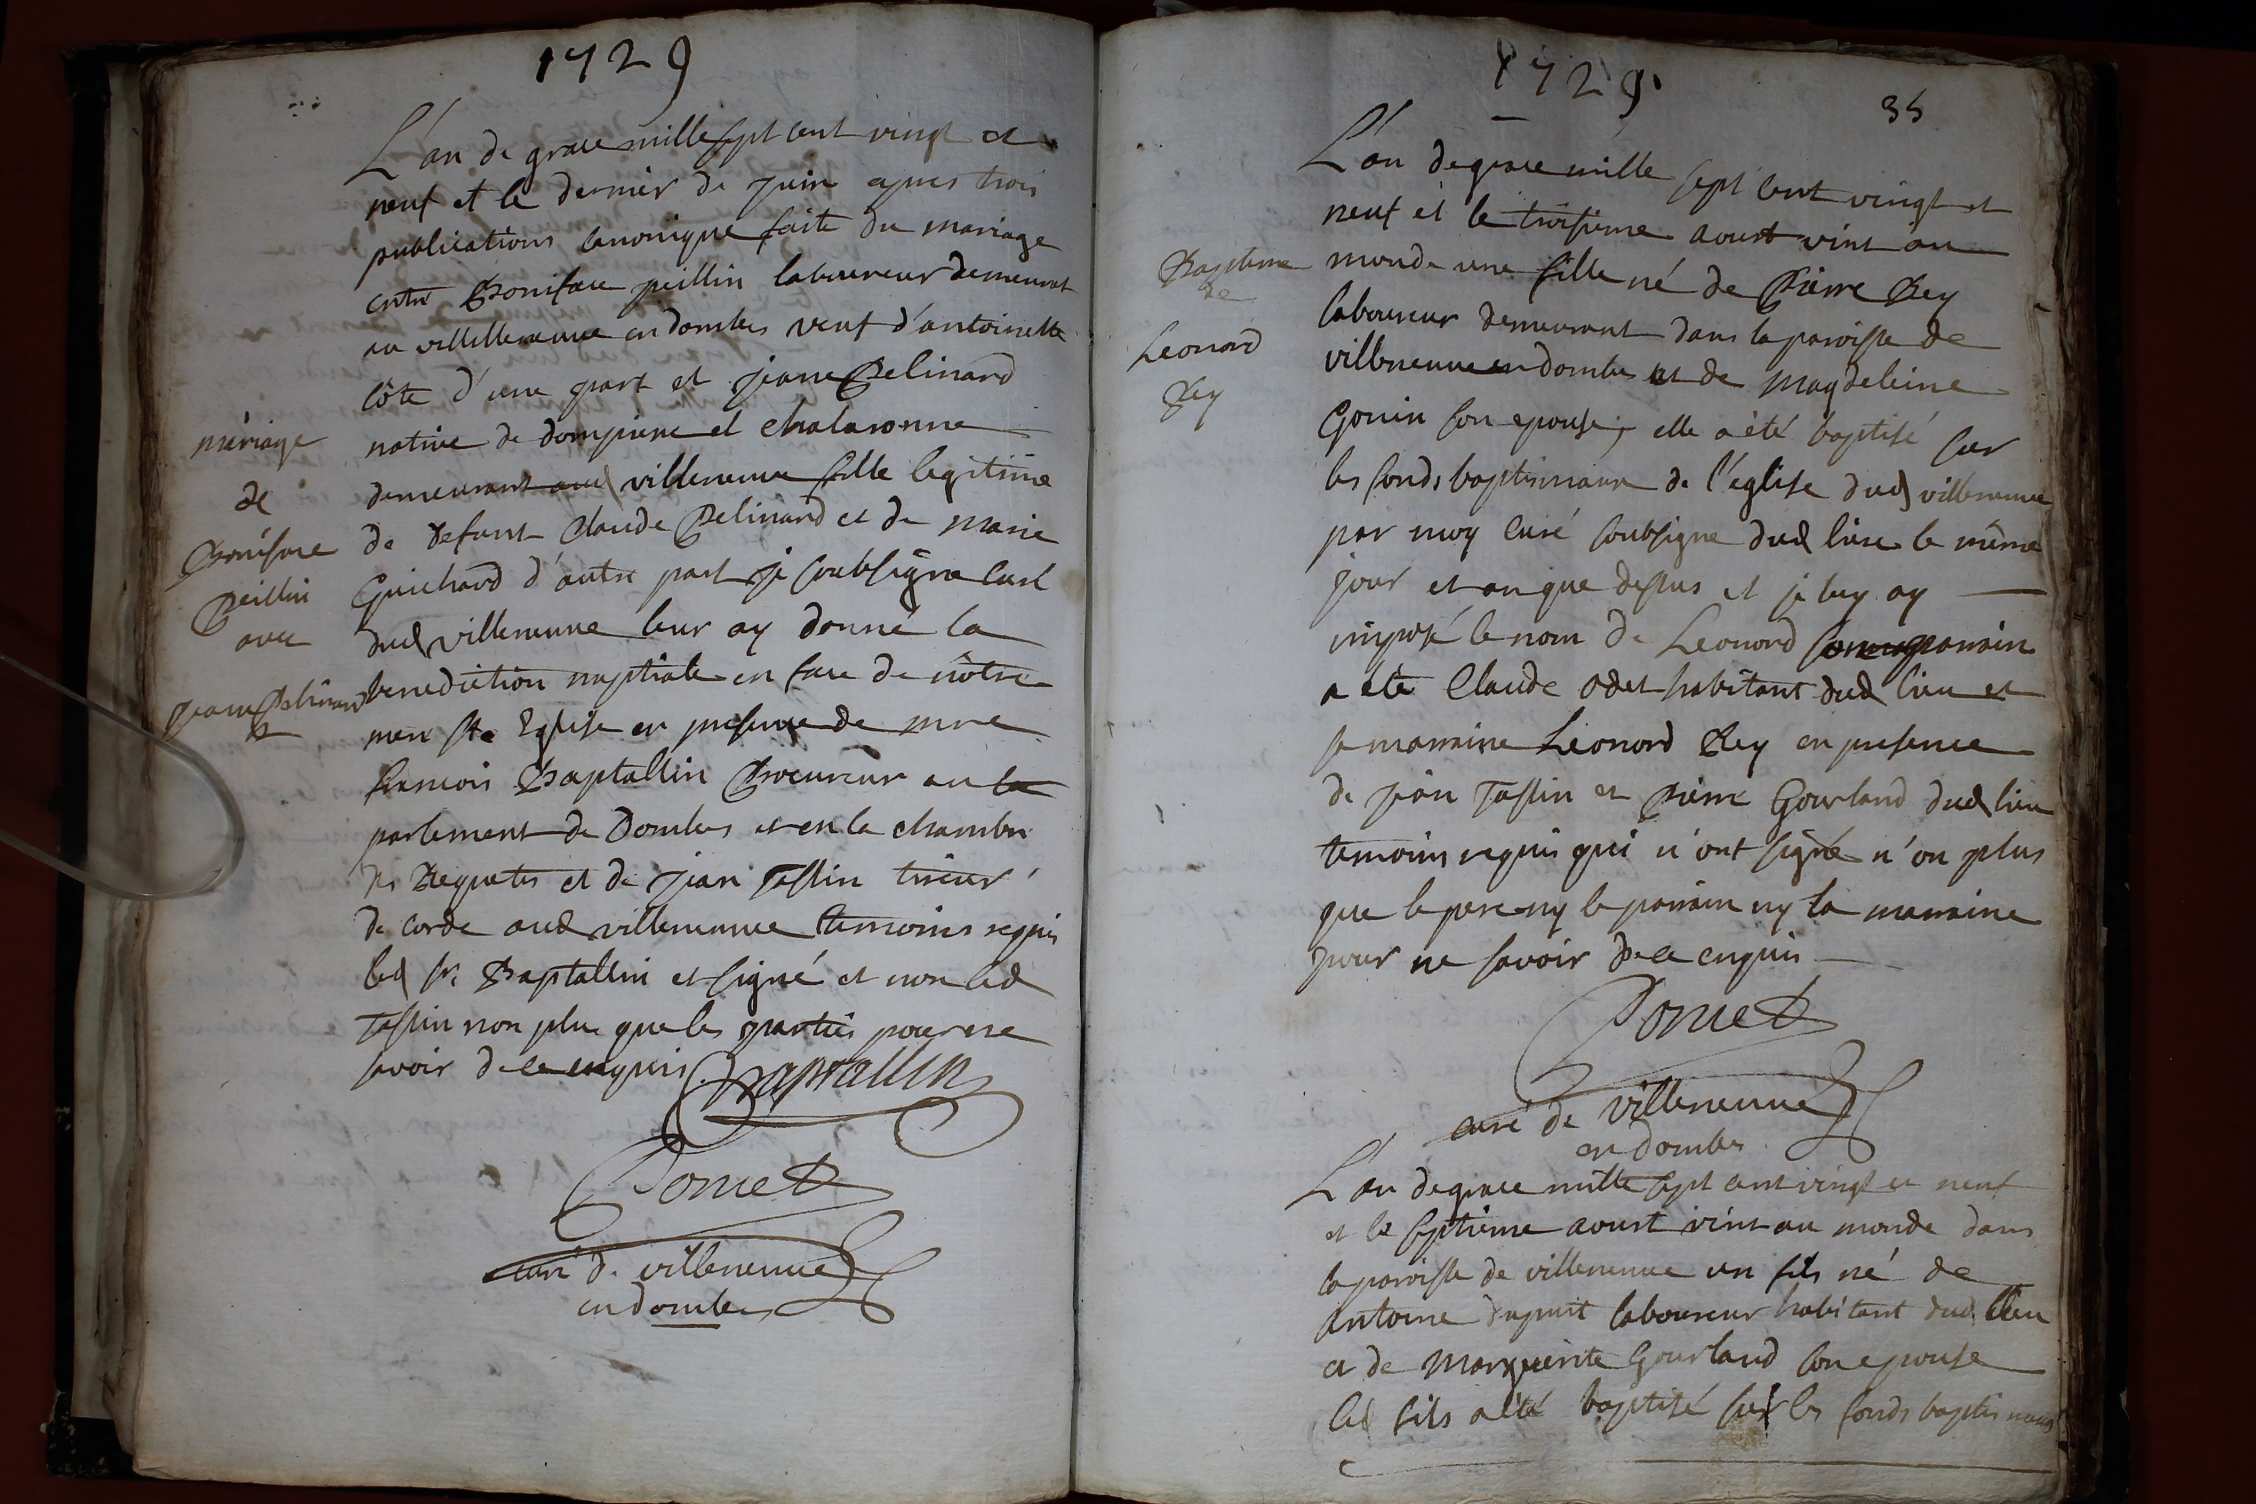 1729
L'an de grace mille sept cent vingt et
neuf et le dernier de juin apres trois
publications canonique faite du mariage
entre Boniface peillin laboureur demeurant
au villelleneuve en dombes veuf d'antoinette
côte d'une part et jeane Pelinard
native de dompierre et chalaronne
demeurant aud villeneuve fille legitime
de defunt Claude Pelinard et de marie
Guichard d'autre part je soubsigne curé
dud villeneuve leur ay donné la
benediction nuptiale en face de nôtre
mere ste Eglise en presence de mre
francois Baptallin Procureur au
parlement de Dombes et en la chambre
des Requetes et de jean Tassin tireur
de corde aud villeneuve temoins requis
led sr. Baptallin et signé et non led
Tassin non plus que les parties pour ne
savoir de ce enquis Baptallin
Pomet
curé de villeneuve
en dombes
mariage
de
Boniface
Peillin
avec
jeane Pelinard
1729
35
L'an de grace mille sept cent vingt et
neuf et le troisieme aoust vint au
monde une fille né de Pierre Rey
laboureur demeurant dans la paroisse de
villeneuve en dombes et de Magdeleine
Gonin son epouse, elle a été baptisé sur
les fonds baptismaux de l'eglise dud villeneuve
par moy curé soubsigne dud lieu le même
jour et an que dessus et je luy ay
imposé le nom de Leonord parrain
a été Claude odet habitant dud lieu et
sa marraine Leonord Rey en presence
de jean Tassin et Pierre Gourland dud lieu
temoins requis qui n'ont signé n'on plus
que le pere ny le parrain ny la marraine
pour ne savoir de ce enquis
Pomet
curé de villeneuve
en dombes
Bapteme
de
Leonord
Rey
L'an de grace mille sept cent vingt et neuf
et le septieme aoust vint au monde dans
la paroisse de villeneuve un fils né de
Antoine dupuit laboureur habitant dud. lieu
et de Marguerite Gourland son epouse
led fils a été baptisé sur les fonds baptismaux